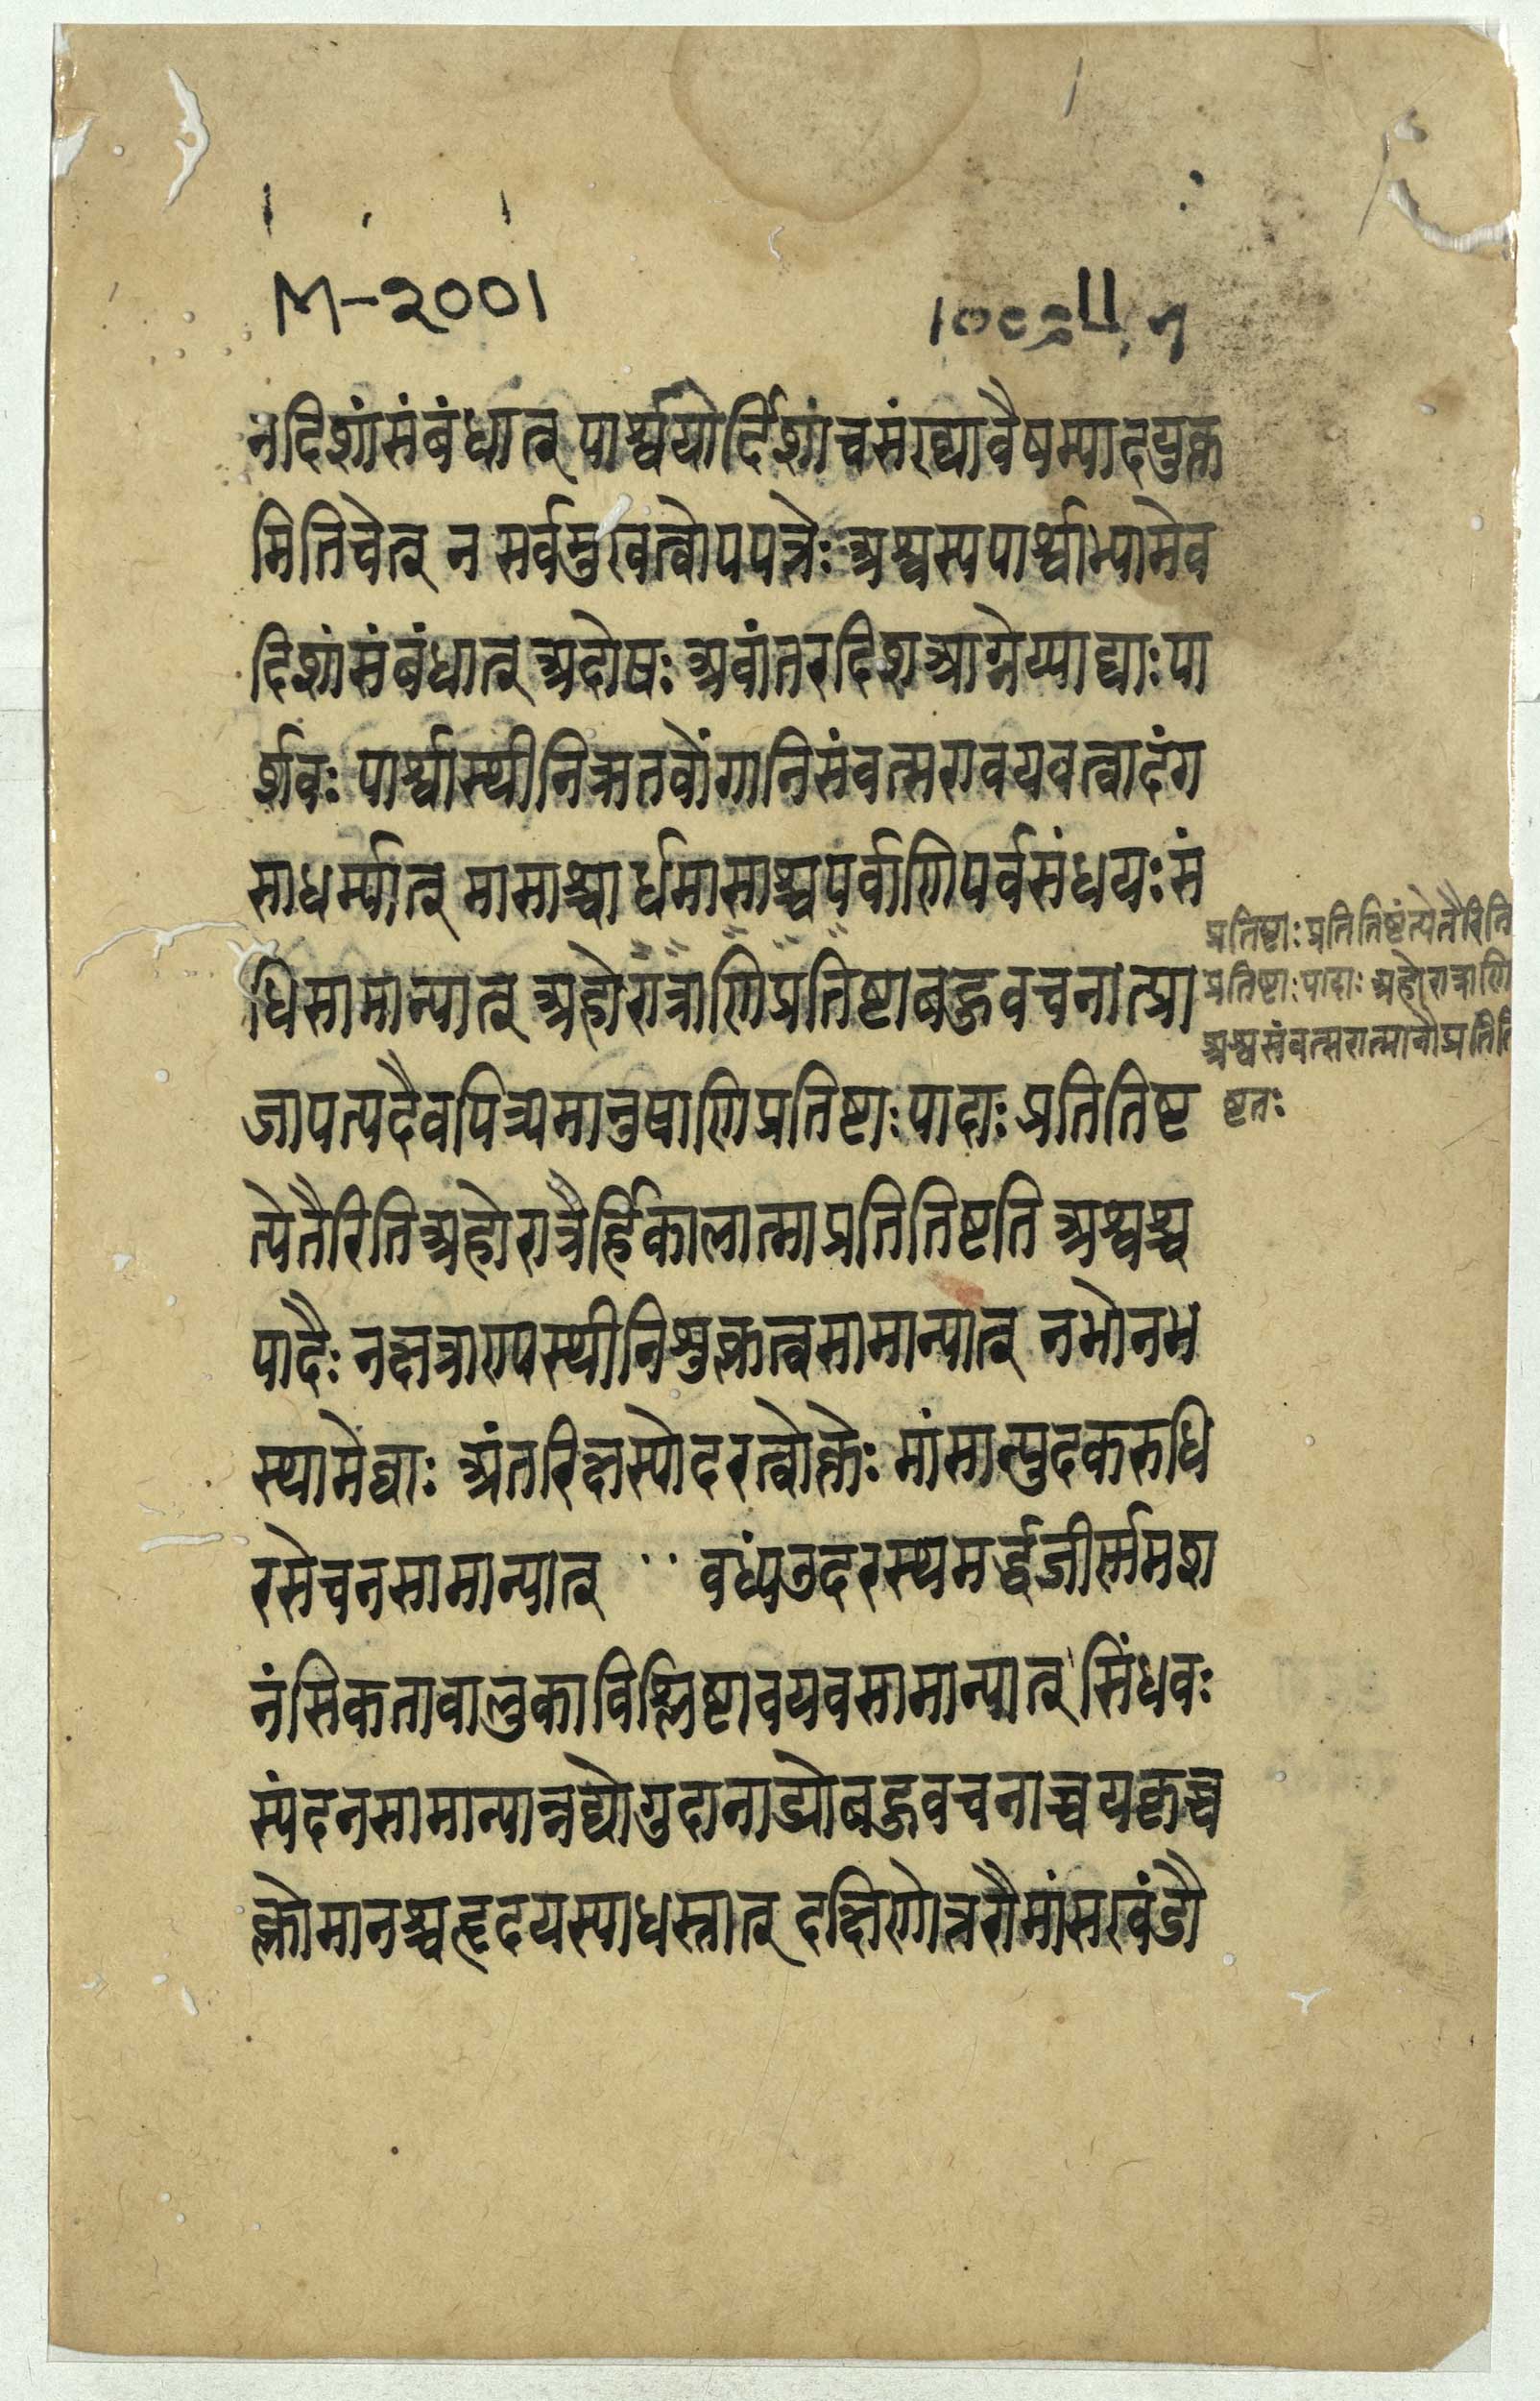 M-२००१
नदिशांसंबंधात् पार्श्वयोर्दिशांचसंख्यावैषम्यादयुक्त
मितिचेत् न सर्वमुखत्वोपपत्तेः अश्वस्यपार्श्वाभ्यामेव
दिशांसंबंधात् अदोषः अवांतरदिशआग्नेय्याद्याः पा
र्शवः पार्श्वास्थीनिऋतवोंगानिसंवत्सरावयवत्वादंग
साधर्म्यात् मासाश्चार्धमासाश्चपर्वाणिपर्वसंधयः सं
धिसामान्यात् अहोरात्राणिप्रतिष्टाबहुवचनात्प्रा
जापत्यदैवपित्र्यमानुषाणिप्रतिष्टाः पादाः प्रतितिष्ट
त्येतैरितिअहोरात्रैर्हिकालात्माप्रतितिष्टति अश्वश्च
पादैः नक्षत्राण्यस्थीनिशुक्लत्वसामान्यात् नभोनभ
स्थामेघाः अंतरिक्षस्योदरत्वोक्तेः मांसान्युदकरुधि
रसेचनसामान्यात् वध्यंउदरस्थमर्द्धजीर्समश
नंसिकतावालुकाविश्लिष्टावयवसामान्यात् सिंधवः
स्पंदनसामान्यान्नद्योगुदानाड्योबहुवचनाच्चयकृच्च
क्लोमानश्चहृदयस्याधस्तात् दक्षिणोत्तरौमांसखंडौ
प्रतिष्टाः प्रतितिष्टंत्येतैरिति
प्रतिष्टाः पादाः अहोरात्राणि
अश्वसंवत्सरात्मानौप्रतिति
ष्टतः